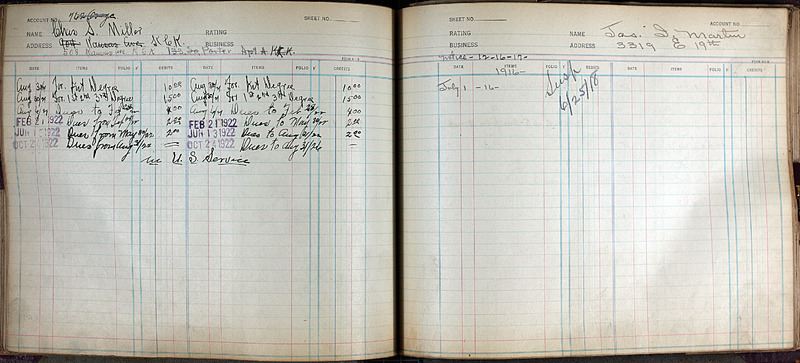 ACCOUNT NO. 762 Orange
SHEET NO.
NAME Chas S. Miller
RATING
ADDRESS Kansas Ave K.C.K.
BUSINESS
508 Kansas Ave K.C.K 133 So Porter Apt A K.C.K.
DATE ITEMS FOLIO DEBITS DATE ITEMS FOLIO CREDITS
Aug 30/19 For 1st Degree 10 00 Aug 30/19 For 1st Degree 10 00
For 1st 2nd 3rd Degree 15 00 For 1st 2nd 3rd Degree 15 00
Dues to Feb 4 00 Dues to Feb 4 00
FEB 21 1922 Dues 2 00 FEB 21 1922 Dues to May 2 00
JUN 13 1922 Dues from May 2 00 JUN 13 1922 Dues to Aug 2 00
OCT 24 1922 Dues from Aug 31/22 — OCT 24 1922 Dues to Aug 31/26 —
in U. S. Service
SHEET NO.
ACCOUNT NO.
RATING
NAME Jas. D. Martin
BUSINESS
ADDRESS 3319 E 19th
Notice - 12-16-17-
DATE ITEMS FOLIO DEBITS DATE ITEMS FOLIO CREDITS
1916-
July 1 -16-
Susp
6/25/18